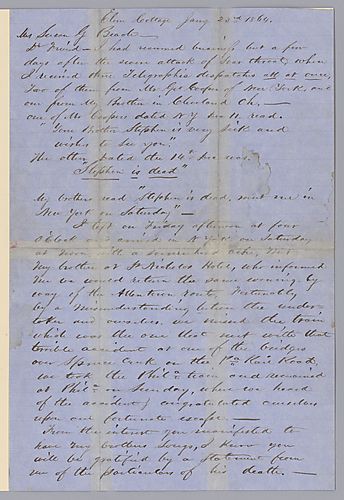 Elm Cottage Jany 23rd 1864.
Mrs Susan G Beach
Dr Friend – I had resumed business but a few
days after the severe attack of Sore throat, when
I received three Telegraphic dispatches all at once,
Two of them from Mr Cooper of New York, and
one from My Brother in Cleveland Oh. –
one of Mr Coopers dated N.Y. 11. read.
"Your Brother Stephen is very Sick and
wishes to see you"
The other, dated the 14th was.
"Stephen is dead"
My brothers read "Stephen is dead, meet me in
New York on Saturday" –
I left on Friday afternoon at four
O'Clock and arrived in N. York on Saturday
at Noon, with a
My brother at St Nicholas Hotel, who informed
me we would return the same evening by
way of the Allentown route, Fortunately,
by a Misunderstanding between the under-
taker and ourselves, we missed the train
which was the one that met with that
terrible accident at one of the bridges
over Spruce Creek on the Pa. Rail Road,
we took the Phila train and remained
at Phila on Sunday, when we heard
of the accident, & congratulated ourselves
upon our fortunate escape. –
From the interest you manifested to
have My brothers Songs, I know you
will be gratified by a Statement from
me of the particulars of his death. –